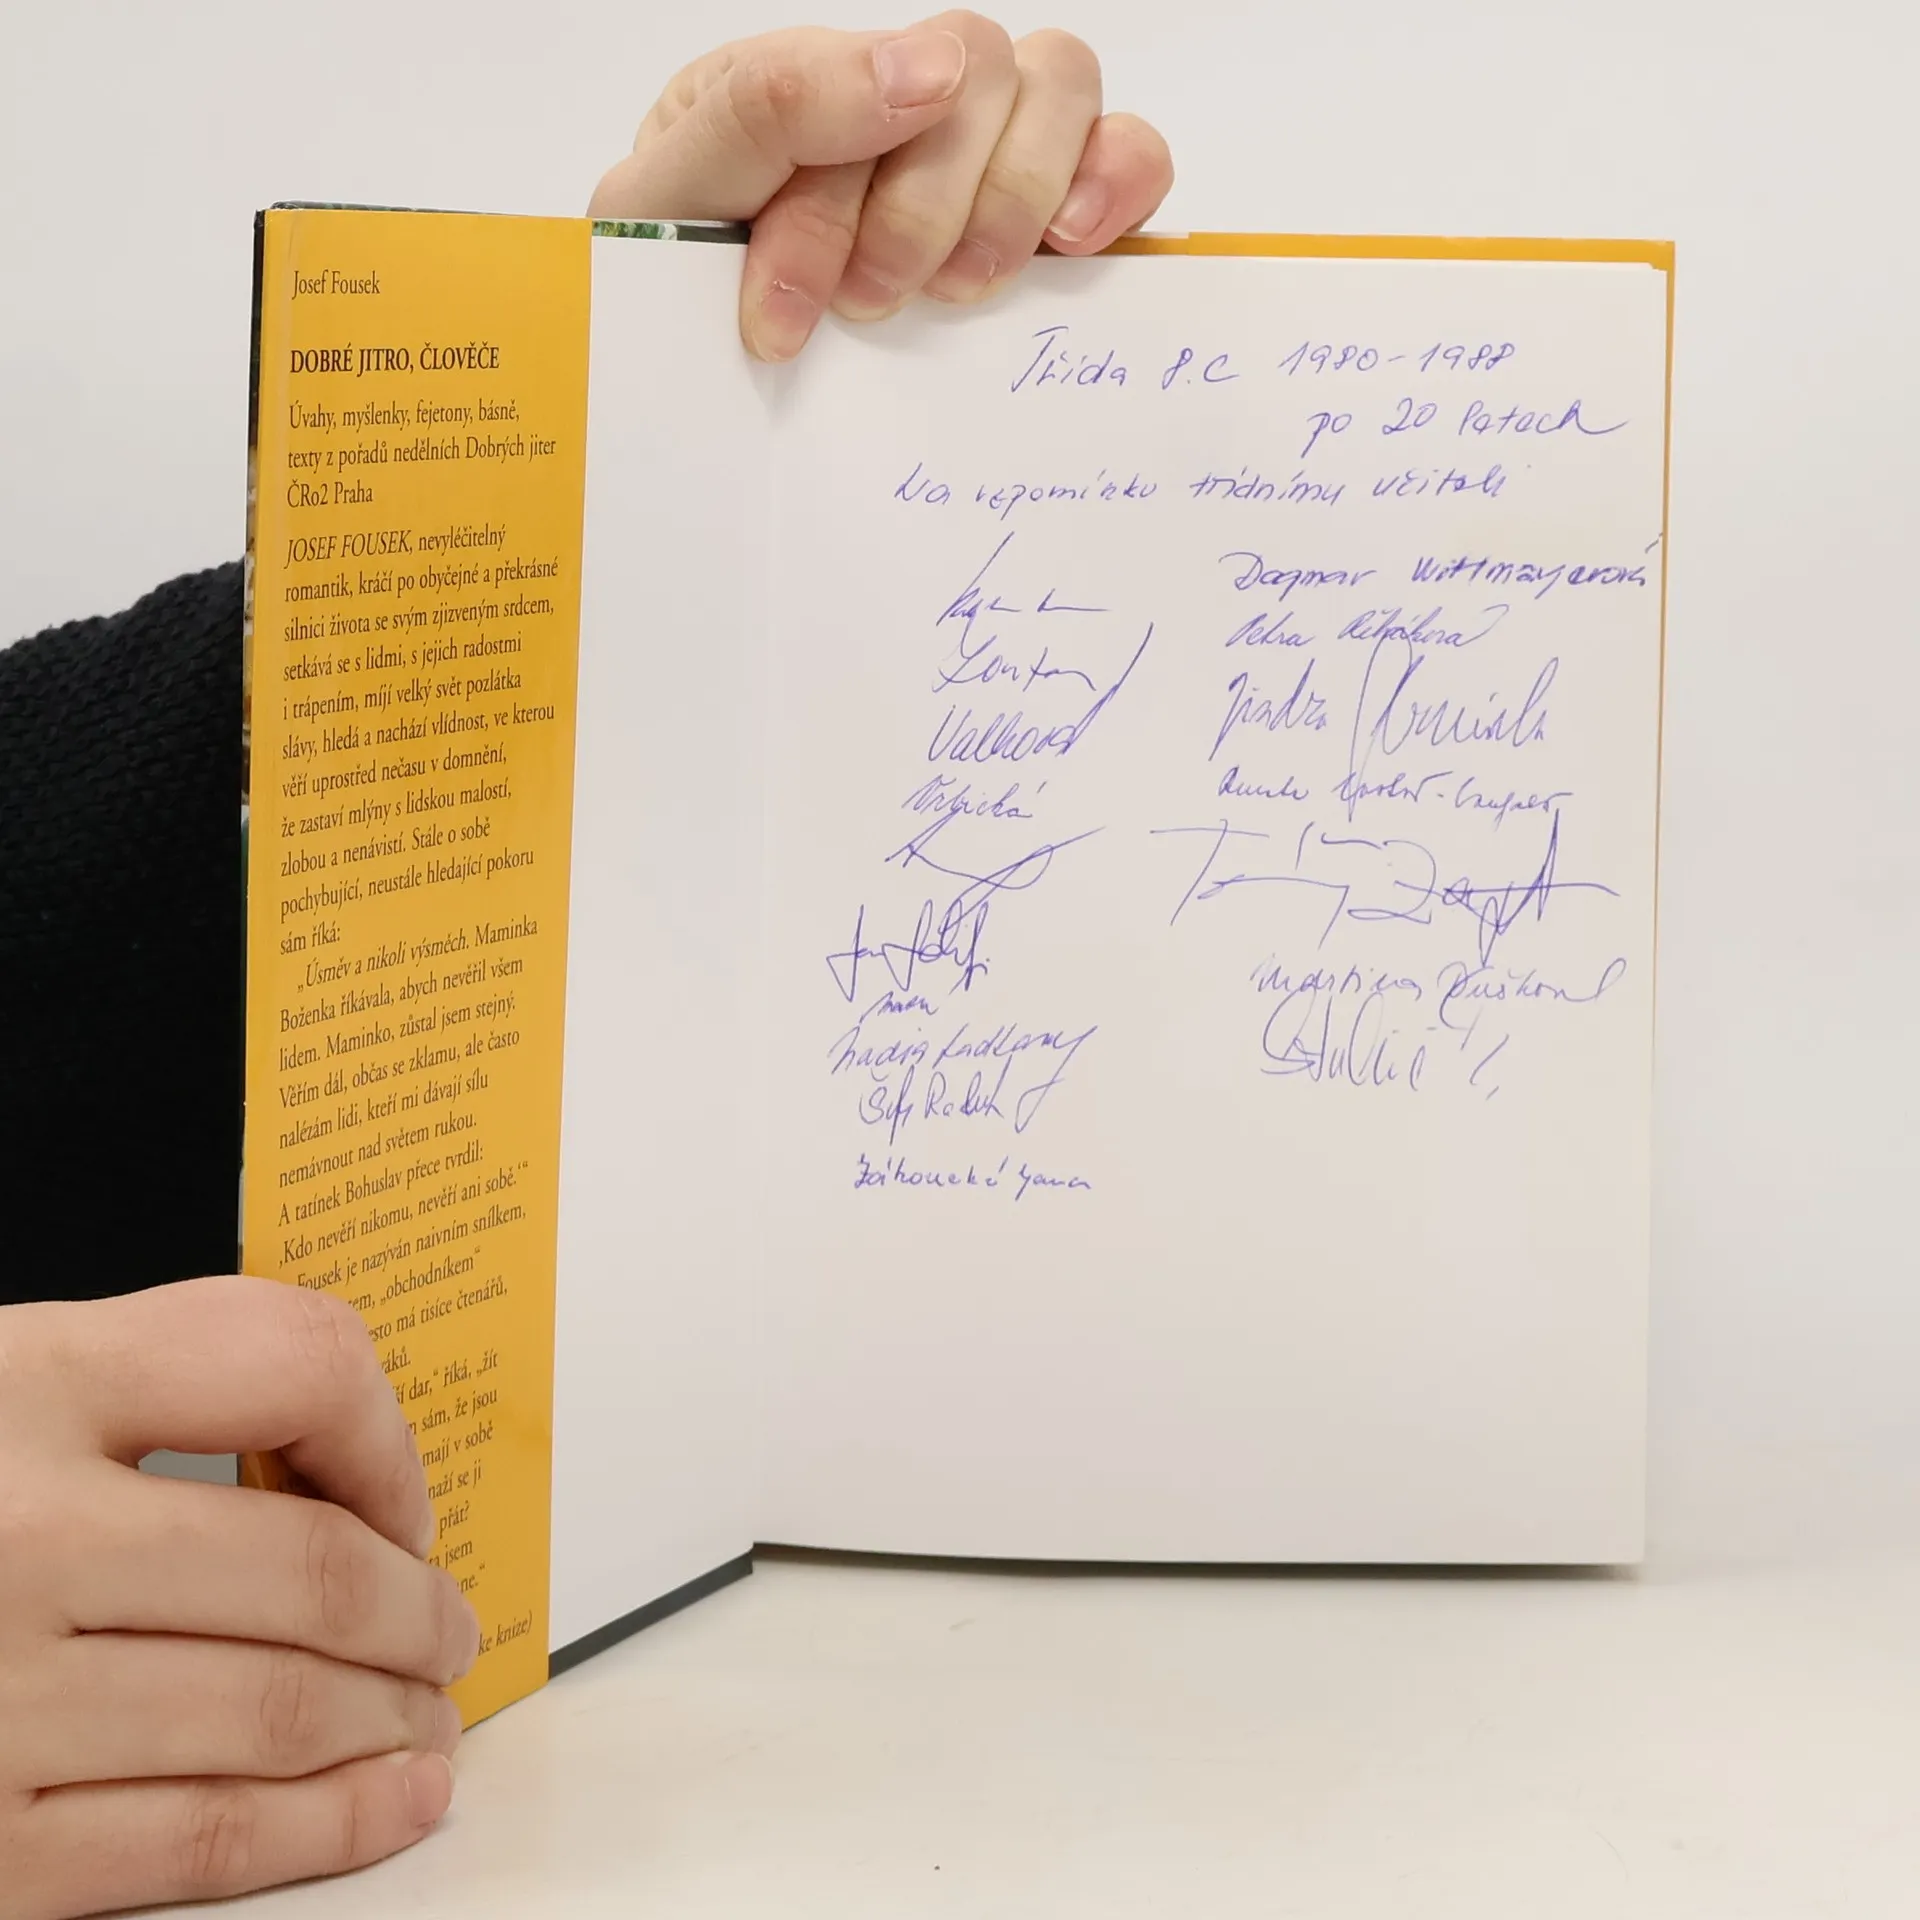 Josef Fousek
DOBRÉ JITRO, ČLOVĚČE
Úvahy, myšlenky, fejetony, básně,
texty z pořadů nedělních Dobrých jiter
ČRo2 Praha
JOSEF FOUSEK, nevyléčitelný
romantik, kráčí po obyčejné a překrásné
silnici života se svým zjizveným srdcem,
setkává se s lidmi, s jejich radostmi
i trápením, míjí velký svět pozlátka
slávy, hledá a nachází vlídnost, ve kterou
věří uprostřed nečasu v domnění,
že zastaví mlýny s lidskou malostí,
zlobou a nenávistí. Stále o sobě
pochybující, neustále hledající pokoru
sám říká:
„Úsměv a nikoli výsměch. Maminka
Boženka říkávala, abych nevěřil všem
lidem. Maminko, zůstal jsem stejný.
Věřím dál, občas se zklamu, ale často
nalézám lidi, kteří mi dávají sílu
nemávnout nad světem rukou.
A tatínek Bohuslav přece tvrdil:
‚Kdo nevěří nikomu, nevěří ani sobě.‘“
Fousek je nazýván naivním snílkem,
„obchodníkem“
má tisíce čtenářů,
dar,“ říká, „žít
sám, že jsou
mají v sobě
se ji
přát?
jsem
ke knize)
Třída 8.C 1980-1988
po 20 letech
Na vzpomínku třídnímu učiteli
Dagmar Wittmayerová
Petra
Valkova
Jindra
Vrbická
Martina Dušková
Nadia
Záhoucká Jana